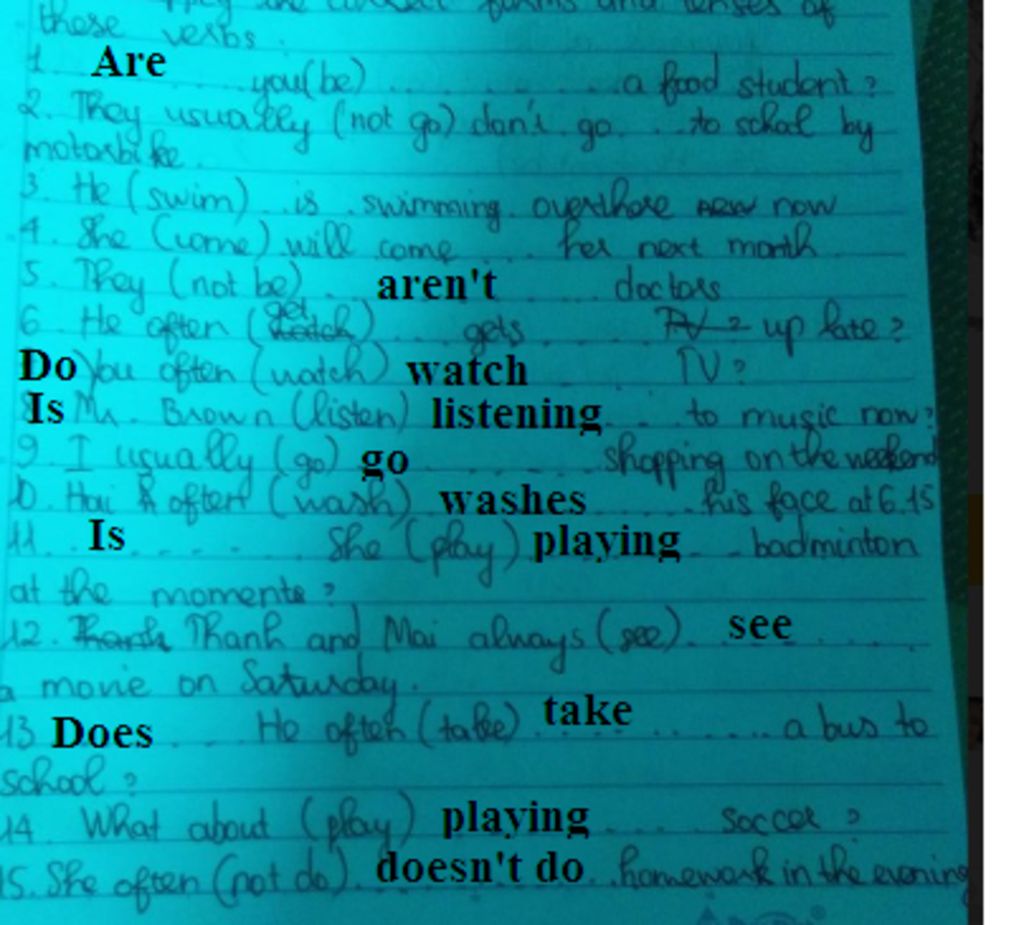 forms and tenses of
these verbs.
1. Are you(be) ............ a food student?
2. They usually (not go) don't go ... to school by
motorbike.
3. He (swim) .is .swimming. overthere new now
4. She (come) will come ... her next month
5. They (not be) . aren't ... doctors
6. He often (watch get) .... gets ..... TV? up late?
Do You often (watch) watch ... TV?
Is Mr. Brown (listen) listening ... to music now?
9. I usually (go) go ........ shopping on the weekend
10. Hai often (wash) washes ... his face at 6.15
11. Is ...... She (play) playing ... badminton
at the moments?
12. Thanh Thanh and Mai always (see). see ....
a movie on Saturday.
13 Does ... He often (take) take ......... a bus to
school?
14. What about (play) playing .... soccer?
15. She often (not do). doesn't do ..homework in the evening